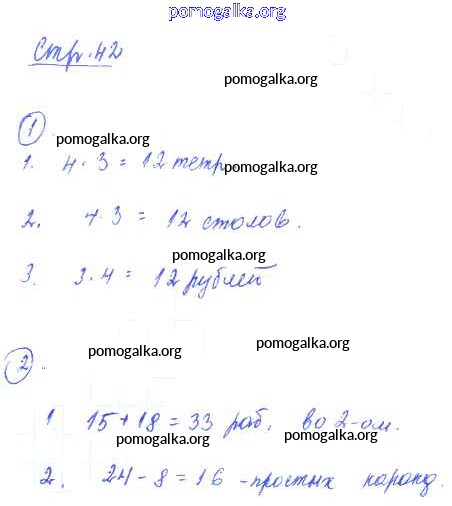 pomogalka.org
Стр. 42
pomogalka.org
1
pomogalka.org
1. 4 · 3 = 12 тетр.
pomogalka.org
2. 4 · 3 = 12 столов.
pomogalka.org
3. 3 · 4 = 12 рублей
pomogalka.org
pomogalka.org
pomogalka.org
2
1 15 + 18 = 33 раб, во 2-ом.
pomogalka.org
pomogalka.org
2. 24 - 8 = 16 - простых каранд.
pomogalka.org
pomogalka.org